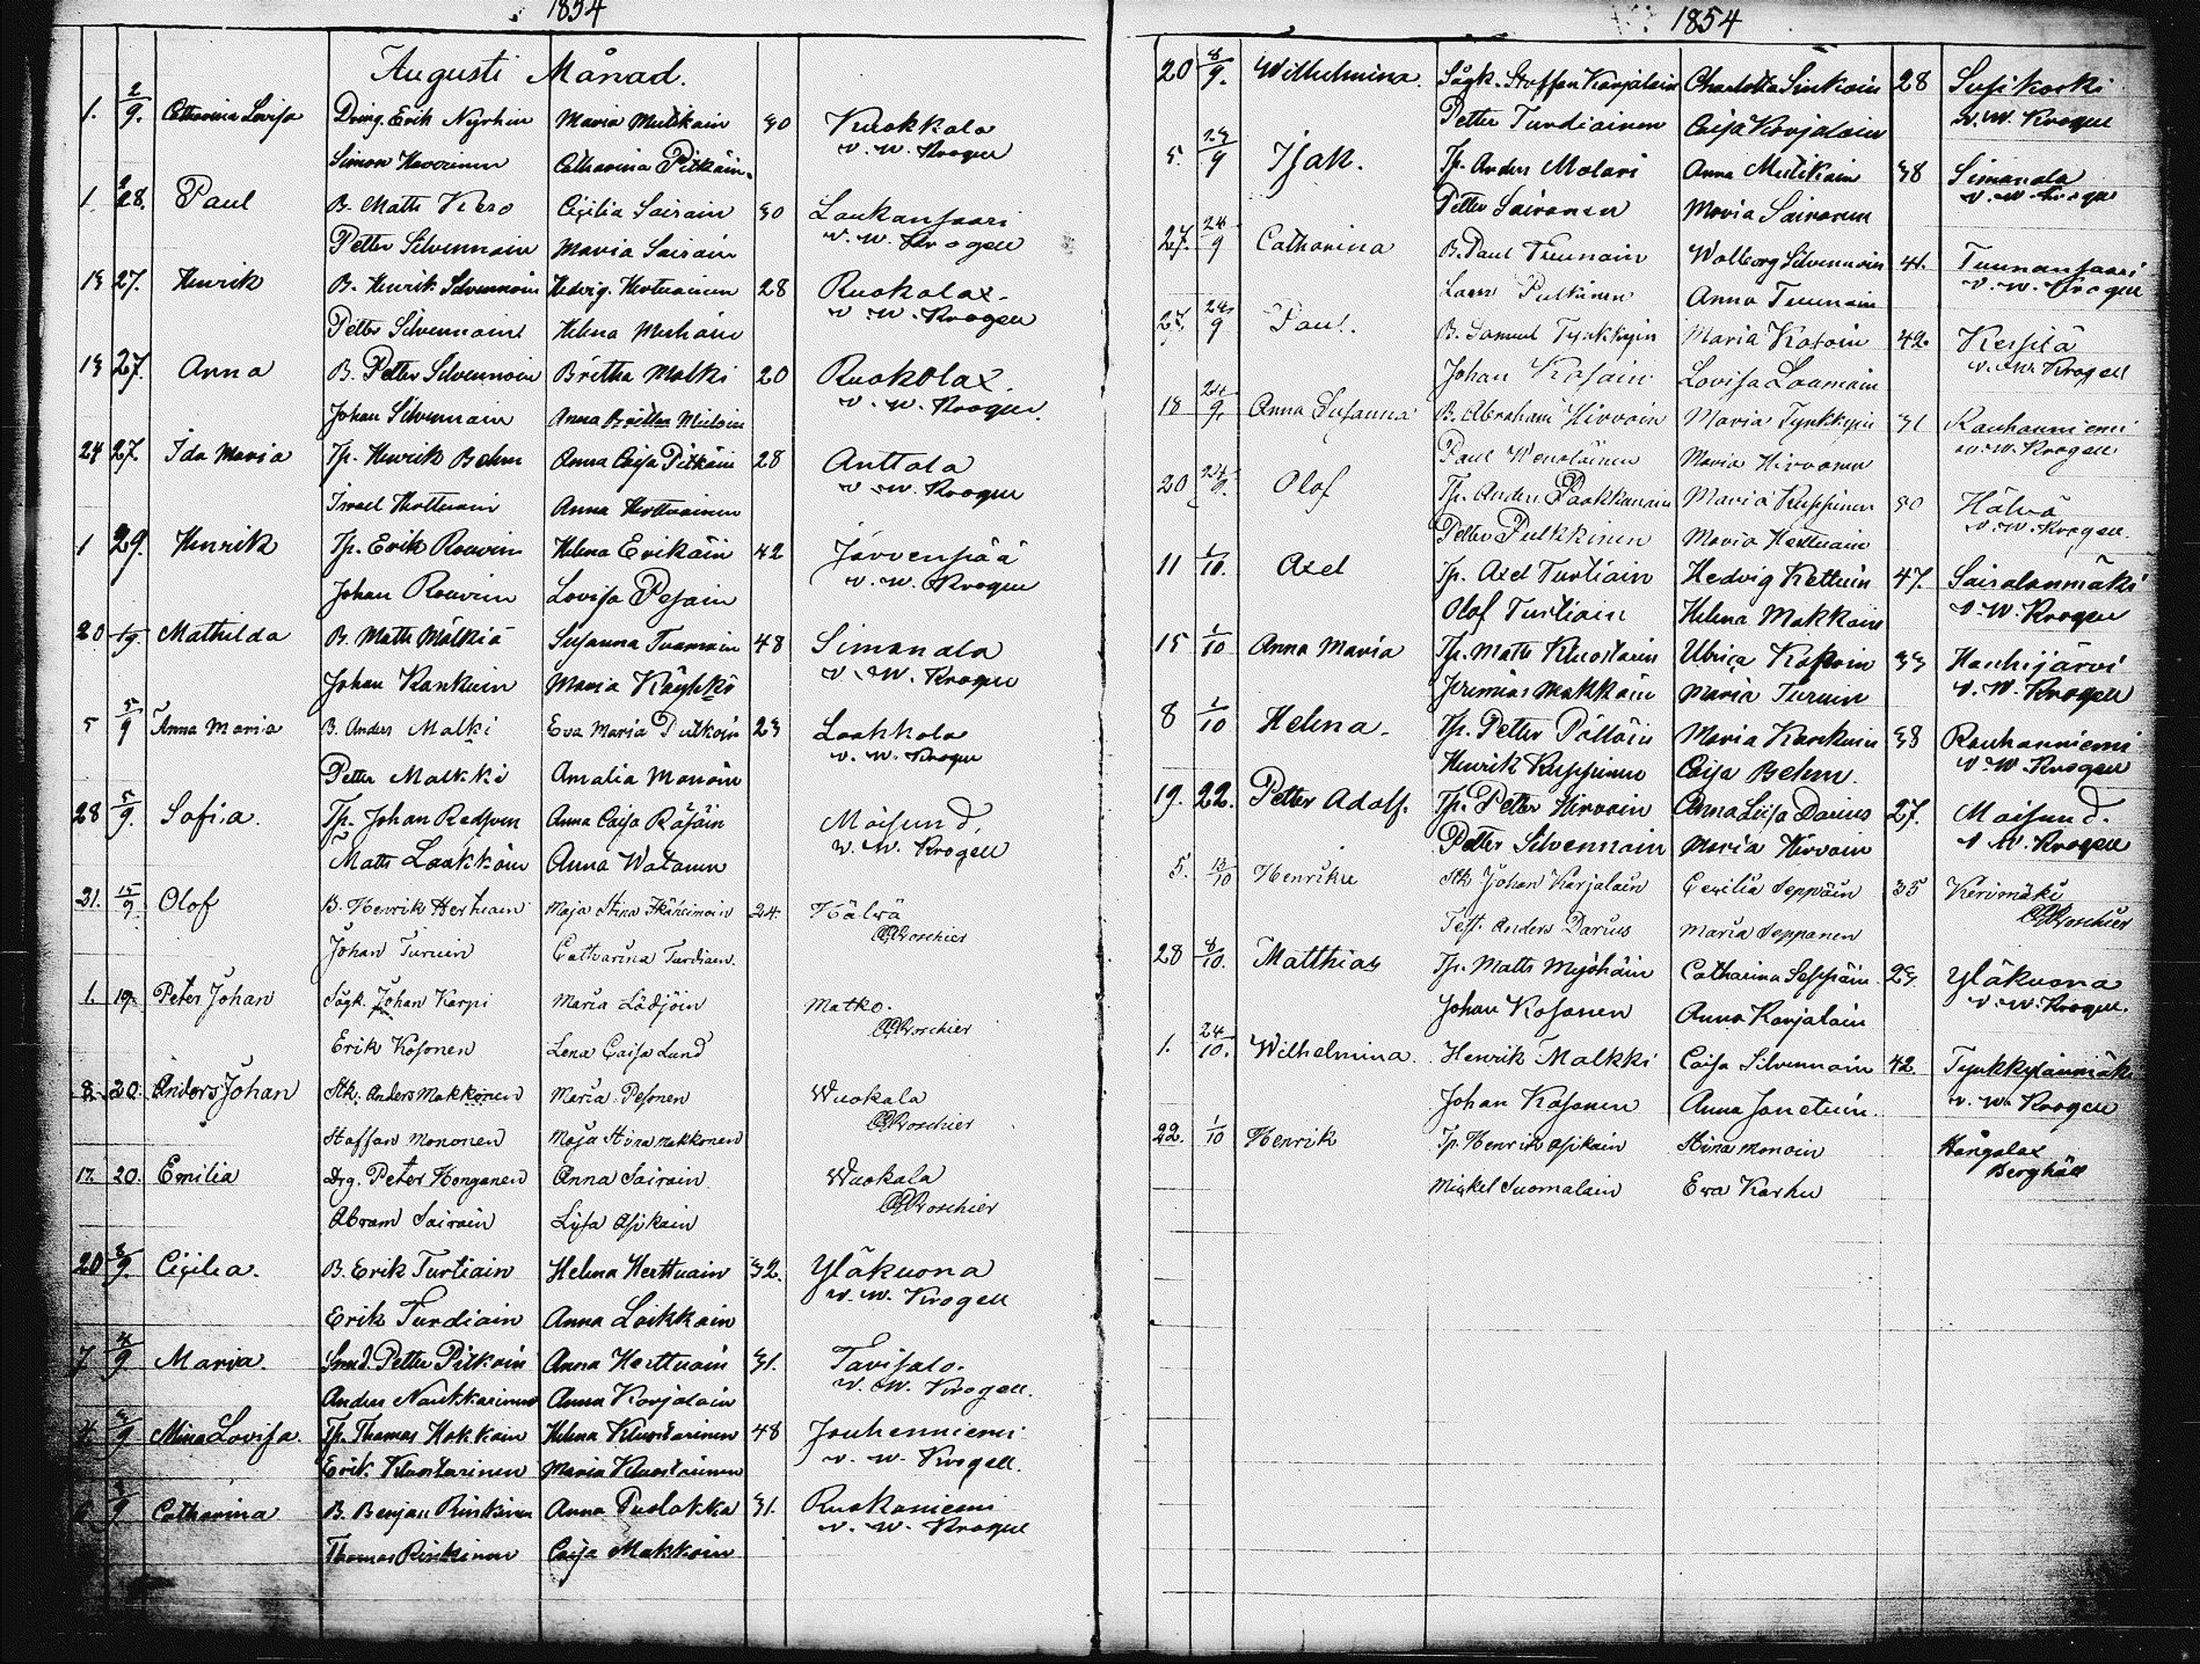 1854
Augusti Månad.
1. 2/9. Catharina Lovisa Dräng. Erik Nyrhin Maria Mutikain 30 Kuokkala
Simon Haverinen Catharina Pitkäin. v. w. Krogell
1. 28. Paul B. Matts Kero Cicilia Sairain 30 Laukansaari
Petter Silvennain Maria Sairain v. w. Krogell
13 27. Henrik B. Henrik Silvennoin Hedvig. Herttuainen 28 Ruokolax.
Petter Silvennain Helena v. w. Krogell
13 27. Anna B. Petter Silvennoin Britha Malki 20 Ruokolax.
Johan Silvennain Anna Britha v. w. Krogell.
24 27. Ida Maria Tp. Henrik Behm Anna Caisa Pitkäin 28 Anttola
Israel Herttuain Anna Herttuainen v. w. Krogell
1 29. Henrik Tp. Erik Rouvin Helena Erikäin 42 Järvenpää
Johan Rouvin Lovisa Pesain v. w. Krogell
20 19. Mathilda B. Matts Mälkiä Susanna Tuamain 48 Simanala
Johan Kankuin Maria Käyhkö v. w. Krogell
5 5/9 Anna Maria B. Anders Malki Eva Maria Putkoin 23 Laakkola
Petter Malkki Amalia Manoin v. w. Krogell
28 5/9. Sofia. Tp. Johan Radsven Anna Caisa Räsäin Moisund,
Matts Laakkain Anna Watanen v. w. Krogell
21. 15/9 Olof B. Henrik Hertuain Maja Stina Ikäheimoin 24. Hälvä
Johan Turuin Catharina Turdiain. Boschier
1. 19. Peter Johan Sågk. Johan Karpi Maria Lädjöin Matko.
Erik Kosonen Lena Caisa Lund Boschier
8. 20. Anders Johan Stk. Anders Makkonen Maria Pesonen Wuokala
Staffan Mononen Maja Stina Makkonen Boschier
17. 20. Emilia Drg. Peter Honganen Anna Sairain Wuokala
Abram Sairain Lisa Asikain Boschier
20 3/9. Cicilia. B. Erik Turtiain Helena Herttuain 32. Yläkuona
Erik Turdiain Anna Loikkain v. w. Krogell
7 4/9 Maria. Smed. Petter Pitkain Anna Herttuain 31. Tavisalo.
Anders Naukkarinen Anna Karjalain v. w. Krogell.
3/9 Mina Lovisa. Tp. Thomas Hakkain Helena Kluostarinen 48 Jouhenniemi
Erik. Kluostarinen Maria Kluostarinen v. w. Krogell.
9 Catharina B. Benjam Rinkinen Anna Puolakka 31. Ruokoniemi
Thomas Rinkinen Caisa Makkoin v. w. Krogell
1854
20 8/9. Wilhelmina. Sågk. Staffan Karjalain Charlotta Sinkoin 28 Susikoski
Petter Turdiainen Caisa Karjalain v. w. Krogell
5. 23/9 Isak. Tp. Anders Molari Anna Mutikain 38 Simanala
Petter Sairanen Maria Sairanen v. w. Krogell
27. 24/9 Catharina B. Paul Tuunain Walborg Silvennoin 41. Tuunansaari
Lars Pulkinen Anna Tuunain v. w. Krogell
27. 24/9 Paul. B. Samuel Tynkkyin Maria Kosoin 42. Kersilä
Johan Kosain Lovisa Laamain v. w. Krogell
18 24/9. Anna Susanna B. Abraham Hirvoin Maria Tynkkyin 31 Rauhanniemi
Paul Wenäläinen Maria Hirvonen v. w. Krogell
20 24/9. Olof Tp. Anders Paakkunain Maria Kuppinen 30 Hälvä
Petter Pulkkinen Maria Herttuain v. w. Krogell.
11 1/10. Axel Tp. Axel Turtiain Hedvig Kettuin 47. Sairalanmäki
Olof Turtiain Helena Makkain v. w. Krogell
15 1/10 Anna Maria Tp. Matts Kluostarin Ulrica 33 Hauhijärvi
Jeremias Makkoin Maria Turuin v. w. Krogell
8 1/10 Helena. Tp. Petter Pöllöin Maria Kankuin 38 Rauhanniemi
Henrik Kuppinen Caisa Behm. v. w. Krogell
19. 22. Petter Adolf. Tp. Petter Hirvoin Anna Lisa Darius 27. Moisund.
Petter Silvennain Maria Hirvoin v. w. Krogell
5. 13/10 Henrik Stk Johan Karjalain Cecilia Seppäin 35 Kerimäki
Test. Anders Darius Maria Seppanen Boschier
28 8/10. Matthias Tp. Matts Myöhäin Catharina Seppäin 23. Yläkuona
Johan Kosonen Anna Karjalain v. w. Krogell.
1. 24/10. Wilhelmina. Henrik Malkki Caisa Silvennain 42. Tynkkyläinmäki
Johan Kosonen Anna Jonetuin. v. w. Krogell
22. 1/10 Henrik Tp. Henrik Asikain Stina Monoin Hångalax
Mickel Suomalain Eva Karhu Berghäll